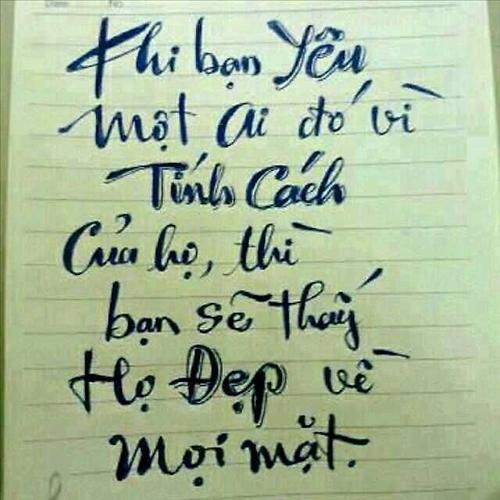 Date No
Khi bạn Yêu
một ai đó vì
Tính Cách
Của họ, thì
bạn sẽ thấy
Họ Đẹp về
mọi mặt.